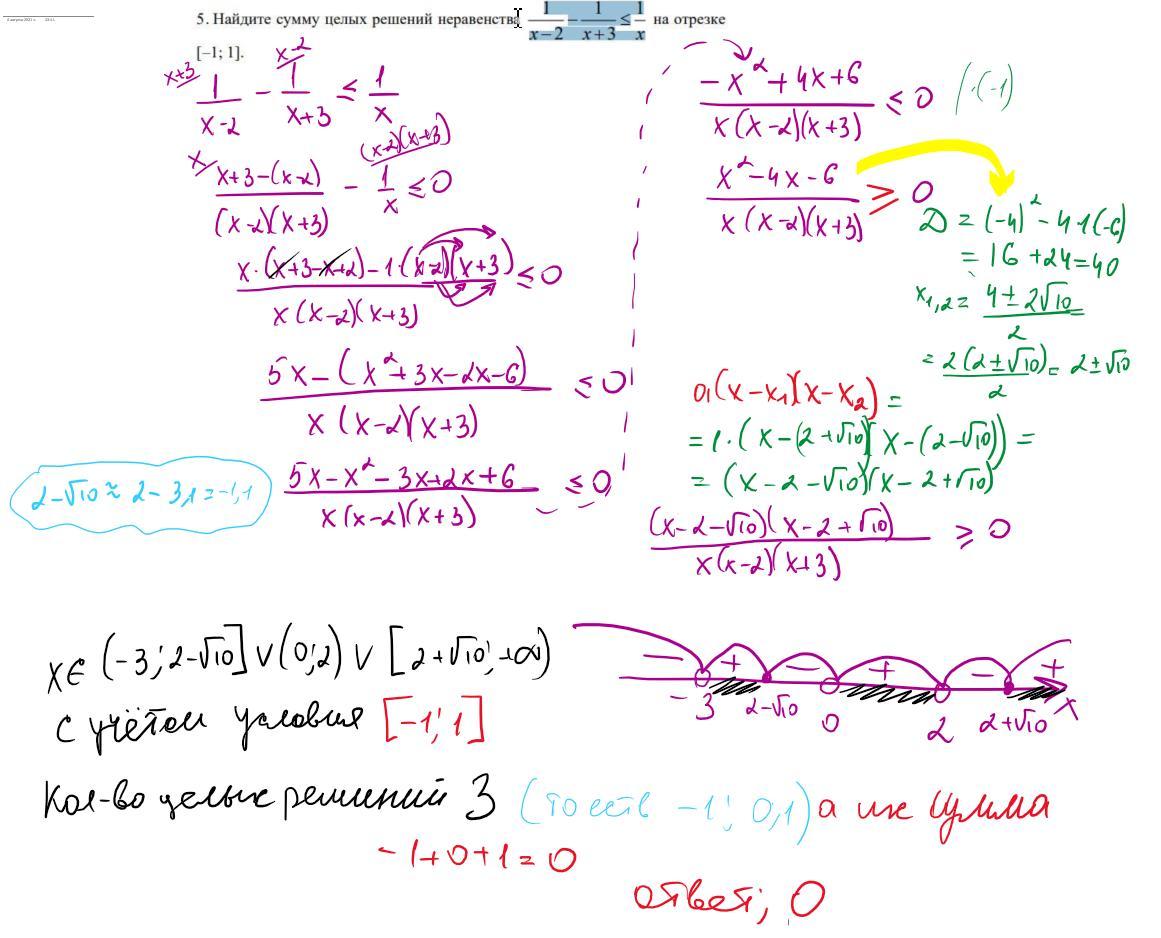 5. Найдите сумму целых решений неравенства 1/(x−2) − 1/(x+3) ≤ 1/x на отрезке
[−1; 1].
x+3/ 1/(x-2) − x-2/ 1/(x+3) ≤ 1/x
x/ (x+3-(x-2))/((x-2)(x+3)) − (x-2)(x+3)/ 1/x ≤ 0
(x·(x+3-x+2)-1·(x-2)(x+3))/(x(x-2)(x+3)) ≤ 0
(5x-(x²+3x-2x-6))/(x(x-2)(x+3)) ≤ 0
(5x-x²-3x+2x+6)/(x(x-2)(x+3)) ≤ 0
2-√10 ≈ 2-3,1=-1,1
(-x²+4x+6)/(x(x-2)(x+3)) ≤ 0 /·(-1)
(x²-4x-6)/(x(x-2)(x+3)) ≥ 0
D = (-4)²-4·1(-6)
= 16+24=40
x1,2 = (4±2√10)/2
= 2(2±√10)/2 = 2±√10
a(x-x1)(x-x2) =
= 1·(x-(2+√10)(x-(2-√10)) =
= (x-2-√10)(x-2+√10)
((x-2-√10)(x-2+√10))/(x(x-2)(x+3)) ≥ 0
x∈ (-3; 2-√10] ∨ (0; 2) ∨ [2+√10; +∞)
− + − + − +
-3 2-√10 0 2 2+√10 x
с учётом условия [-1; 1]
Кол-во целых решений 3 (то есть -1; 0,1) а их сумма
-1+0+1=0
ответ; 0